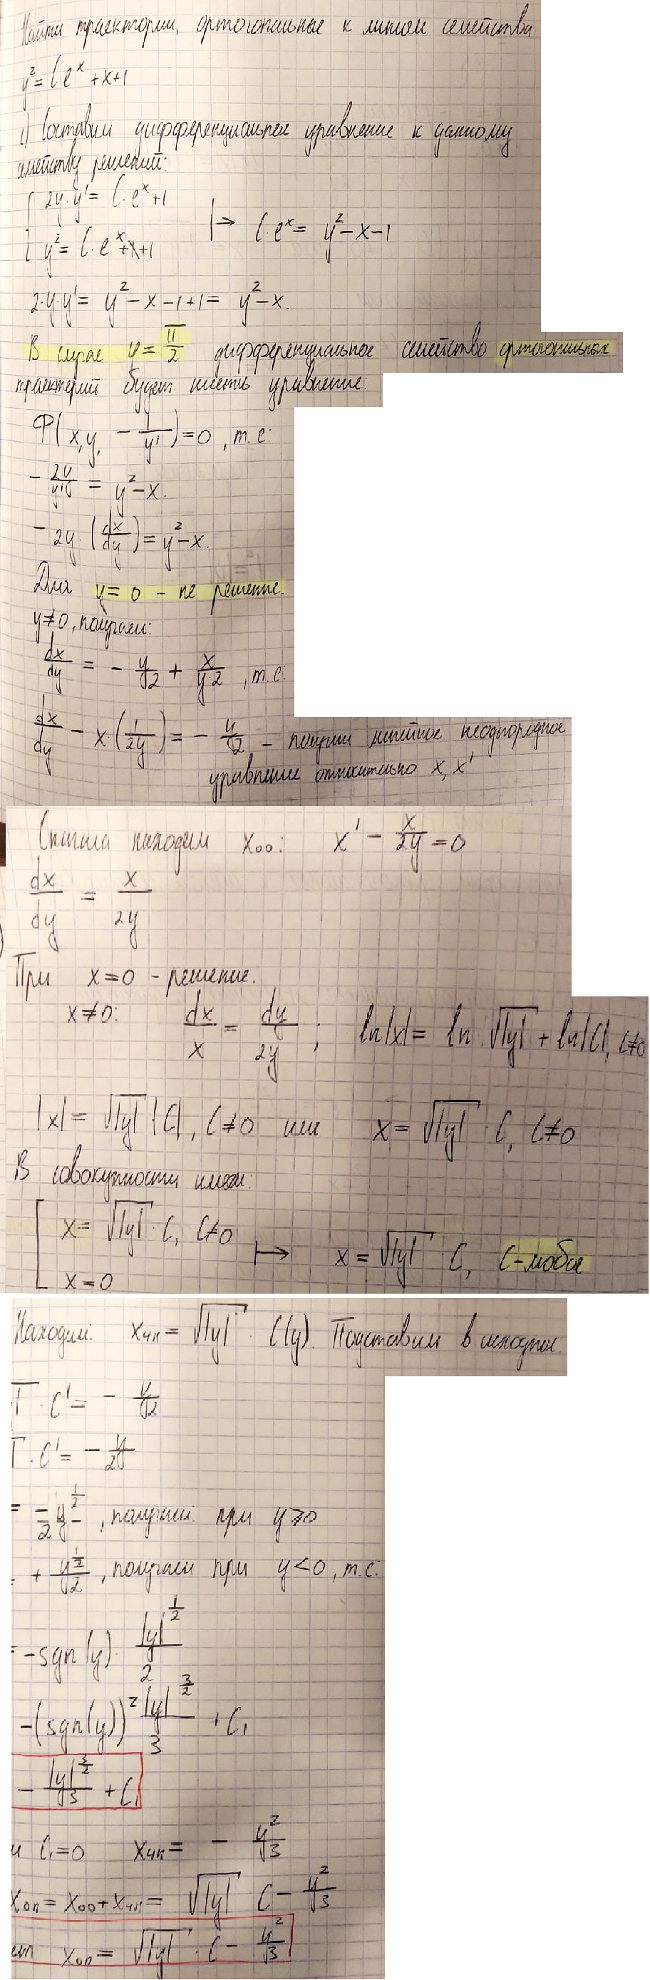 Найти траектории, ортогональные к линиям семейства
y² = C e^x + x + 1
1) Составим дифференциальное уравнение к данному
семейству решений:
{ 2y·y' = C·e^x + 1
{ y² = C·e^x + x + 1 |→ C·e^x = y² - x - 1
2·y·y' = y² - x - 1 + 1 = y² - x.
В случае φ = π/2 дифференциальное семейство ортогональных
траекторий будет иметь уравнение:
Φ(x, y, -1/y') = 0, т.е:
-2y/y' = y² - x.
-2y·(dx/dy) = y² - x.
Для y = 0 - не решение.
y ≠ 0, получаем:
dx/dy = -y/2 + x/(y·2), т.е:
dx/dy - x·(1/2y) = -y/2 - получим линейное неоднородное
уравнение относительно x, x'
Сначала находим x₀₀: x' - x/2y = 0
dx/dy = x/2y
При x = 0 - решение.
x ≠ 0: dx/x = dy/2y ; ln|x| = ln √|y| + ln|C|, C ≠ 0
|x| = √|y| |C|, C ≠ 0 или x = √|y| · C, C ≠ 0
В совокупности имеем:
[ x = √|y| · C, C ≠ 0
[ x = 0 |→ x = √|y| C, C - любое
Находим: xчн = √|y| · C(y). Подставим в исходное
· C' = -y/2
· C' = -y/2
= -1/2 y^(1/2), получаем при y ≥ 0
+ y^(1/2)/2, получаем при y < 0, т.е:
= -sgn(y) · |y|^(1/2)/2
-(sgn(y))² |y|^(3/2)/3 + C₁
-|y|^(3/2)/3 + C₁
и C₁ = 0 xчн = -y²/3
xон = x₀₀ + xчн = √|y| C - y²/3
xон = √|y| · C - y²/3